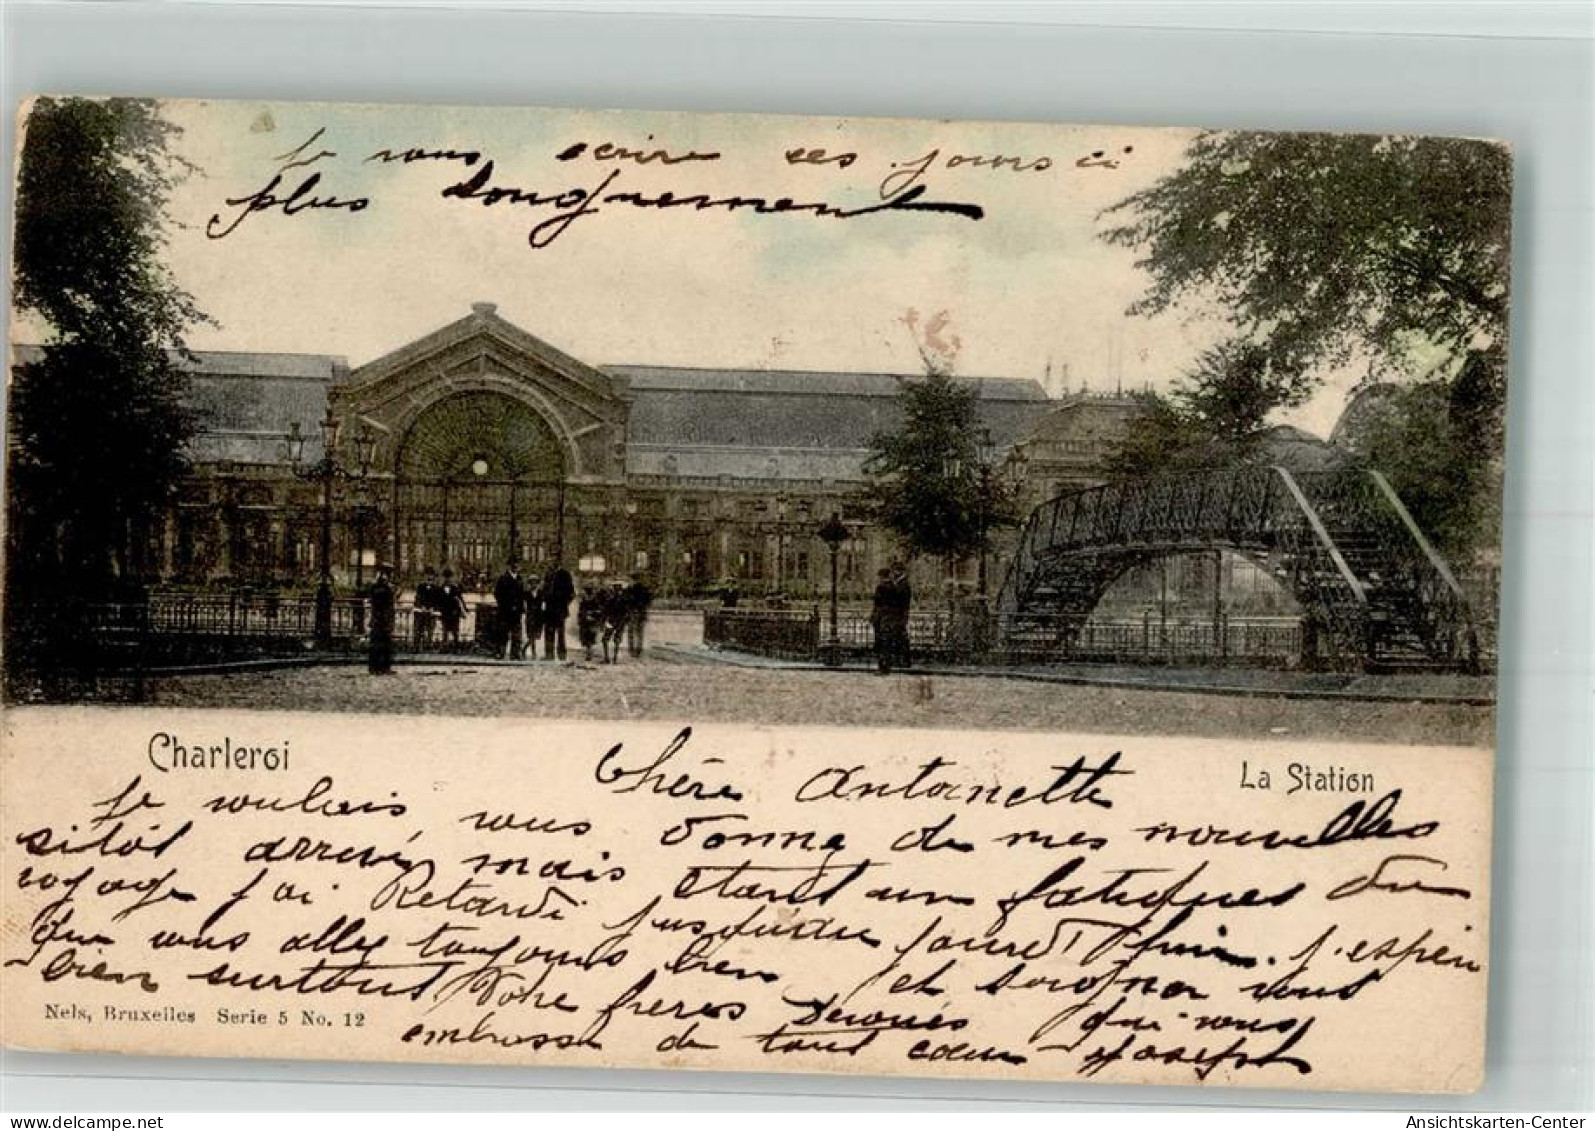 Je vous ecrire ces jours ci
plus longuement
Charleroi
Chère Antoinette
La Station
Je voulais vous donne de mes nouvelles
sitôt arrivér mais etant un fatigues du
voyage j'ai Retardé jusquau jourd'huir. j'espèr
que vous allez toujours bien et soigner vous
bien surtout Votre freres Devoués qui vous
embrasse de tout cœur Joseph
Nels, Bruxelles Serie 5 No. 12
Ansichtskarten-Center